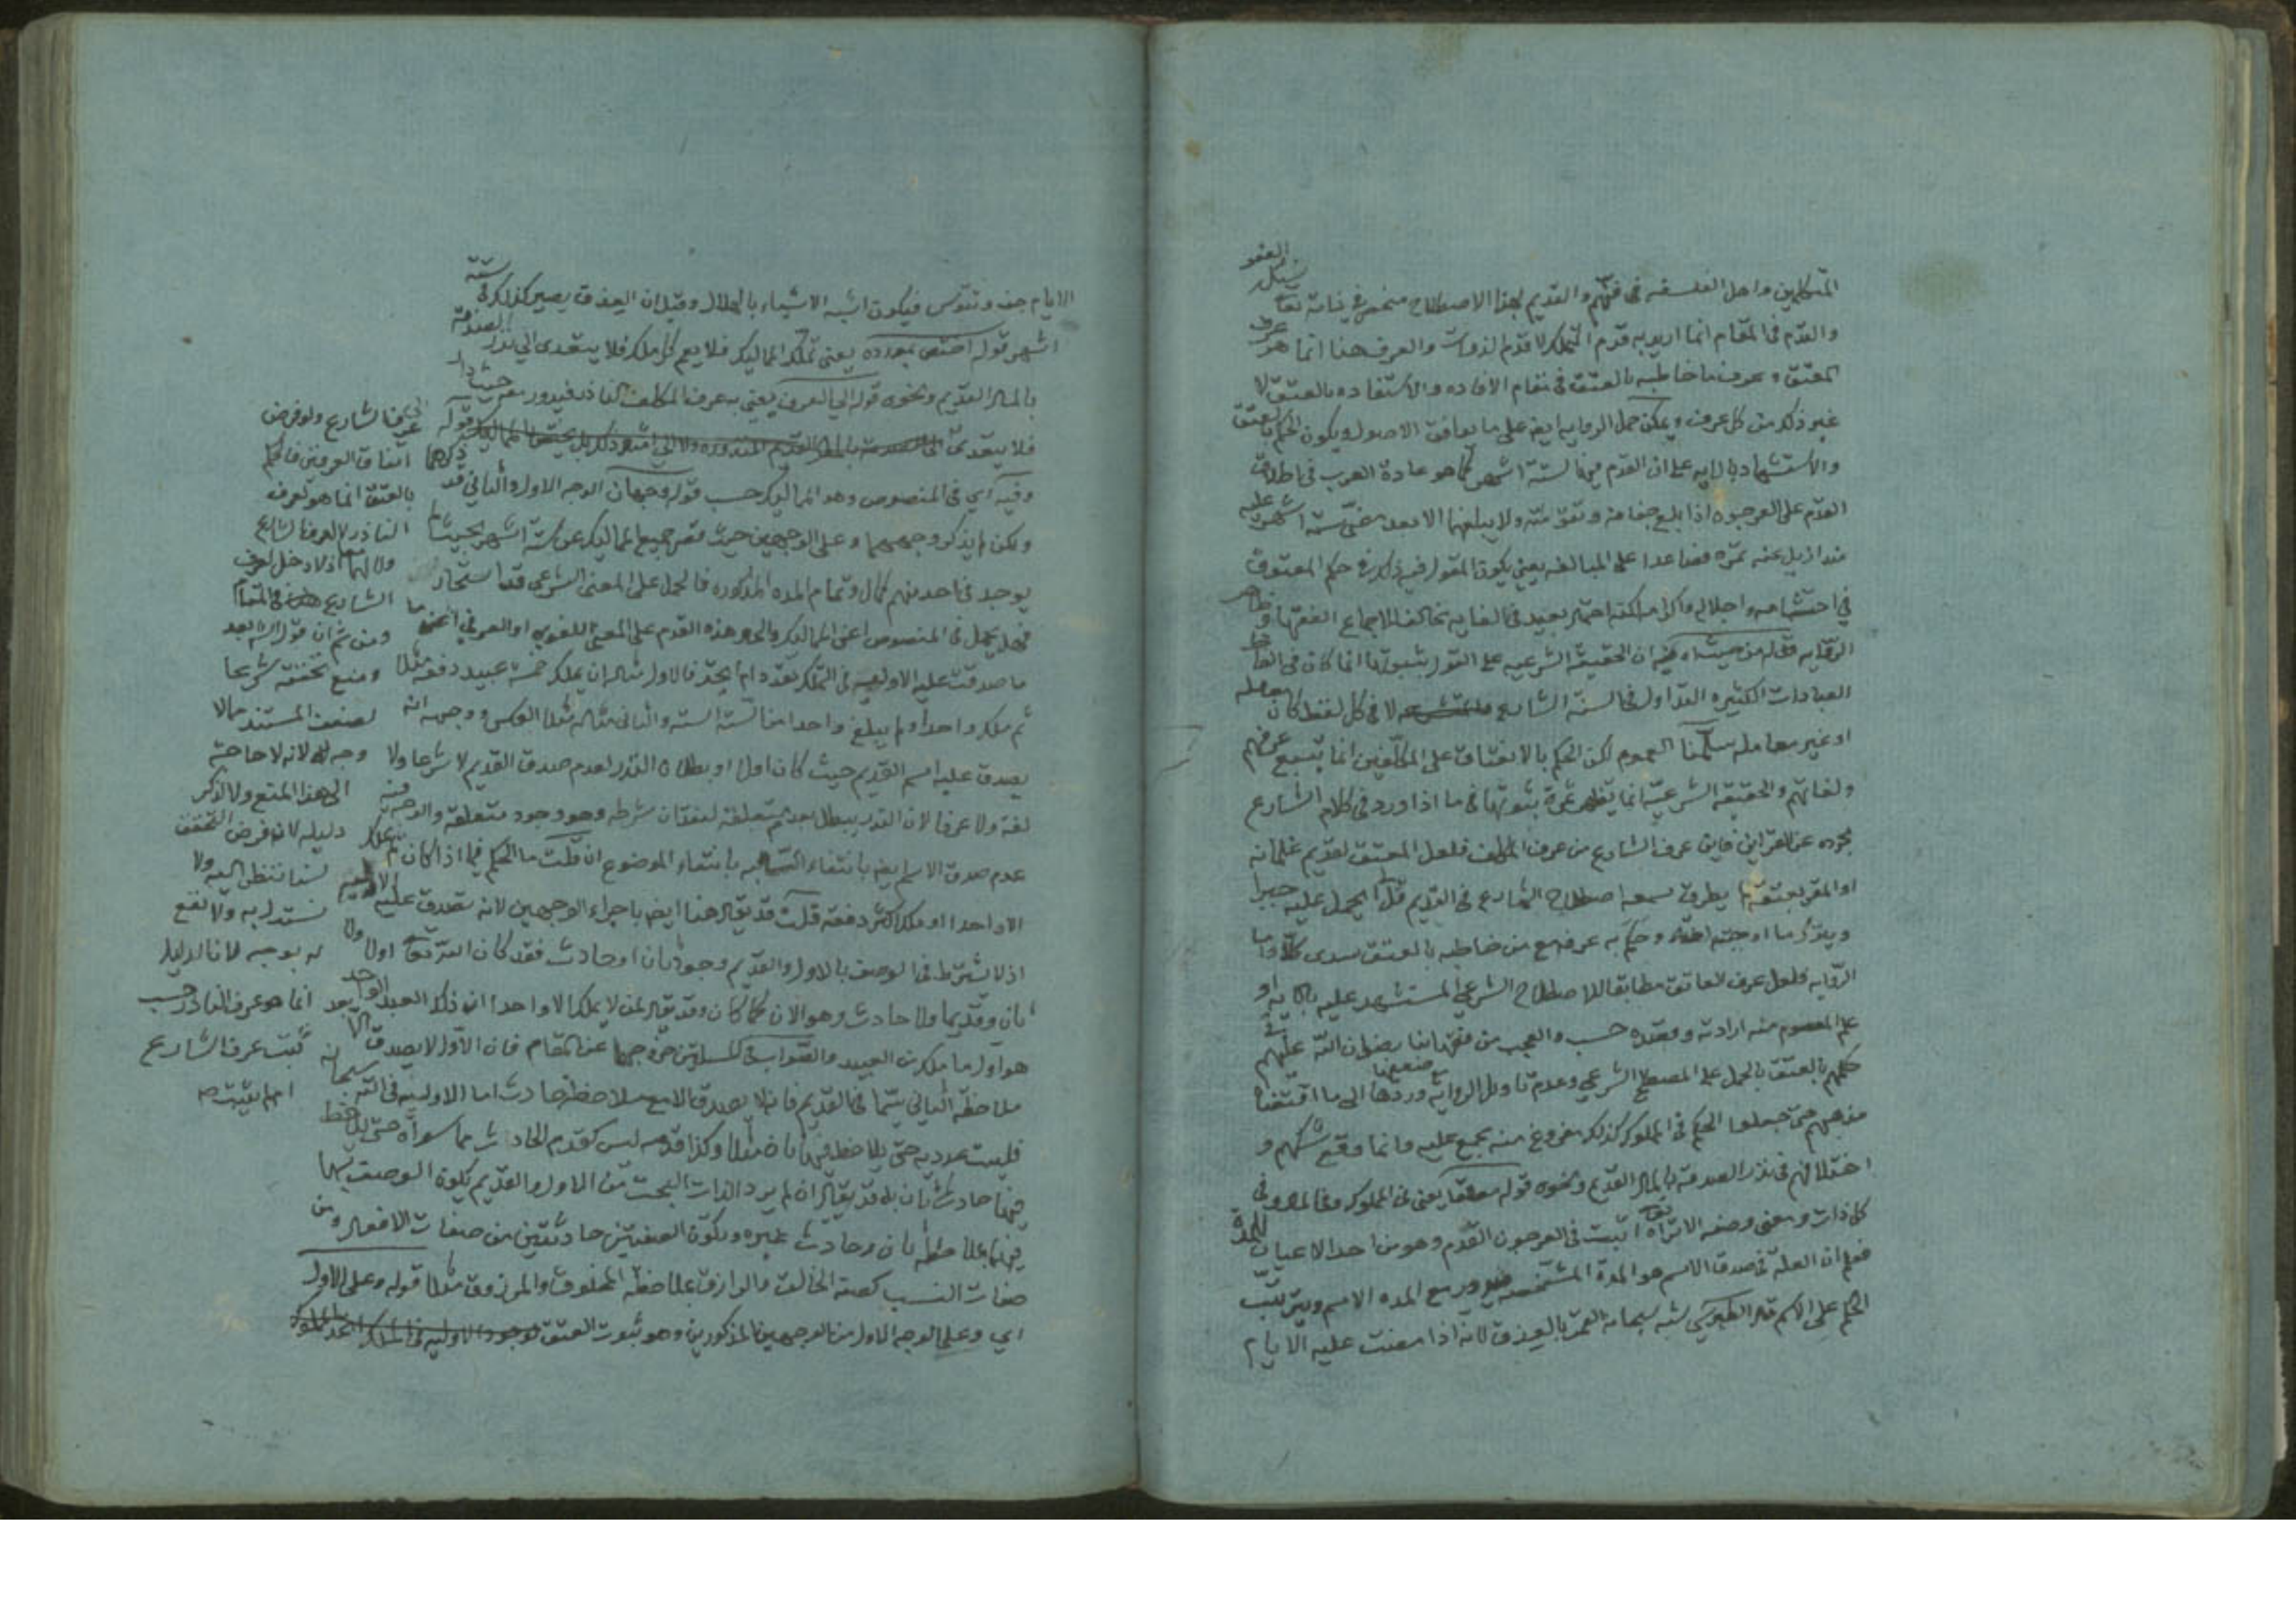 المتكلمين واهل الفلسفه في فنهم والقديم بهذا الاصطلاح منحصر في ذاته تعا
والقدم في المقام انما اريد به قدم التملك لا قدم الذوات والعرف هنا انما هو عرف
المعتق وعرف ما خاطبه بالعتق في مقام الافاده والاستفاده بالعتق لا
غير ذلك من كل عرف ويمكن حمل الروايه ايضا على ما يوافق الاصول ويكون الحكم بالعتق
والاستشهاد بالايه على ان القدم فيها لستة اشهر كما هو عادة العرب في اطلاق
القدم على العرجون اذا بلغ جفافه وتقوسه ولا يبلغهما الا بعد مضي ستة اشهر عليه
منذ ازيل عنه ثمره فصاعدا على المبالغه يعني يكون المقول فيه ذلك في حكم المعتوق
في احتشامه واجلاله واكرامه لكنه احتمال بعيد في الغايه مخالف لاجماع الفقهاء وظاهر
الروايه قوله من حيث اه فيه ان الحقيقة الشرعيه على القول بثبوتها انما كان في الفاظ
العبادات الكثيره التداول في السنة الشارع لا في كل لفظ كان معامله
او غير معامله سلمنا العموم لكن الحكم بالانعتاق على المكلفين انما يتبع عرفهم
ولغاتهم والحقيقه الشرعيه انما تظهر ثمرة ثبوتها في ما اذا ورد في كلام الشارع
مجرده عن القراين فاين عرف الشارع من عرف المكلف فلعل المعتق لقديم غلمانه
او المقر بعتقه ما يطرق سمعه اصطلاح الشارع في القديم فلم يحمل عليه جبرا
ويترك ما اوجبته لغته وحكم به عرفه مع من خاطبه بالعتق سدى كلا واما
الروايه فلعل عرف العاتق مطابقا للاصطلاح الشرعي المستشهد عليه بالايه او
علم المعصوم منه ارادته وقصده حسب والعجب من فقهائنا رضوان الله عليهم في
حكمهم بالعتق بالحمل على المصطلح الشرعي وعدم تاويل الروايه وردها الى ما اقتضاه
مذهبهم حتى جعلوا الحكم في المملوك كذلك مفروغ منه مجمع عليه وانما وقع شكهم و
اختلافهم في نذر الصدقه بالمال القديم ونحوه قوله مطلقا يعني في المملوك وغيره وفي
كل ذات ومعنى وصفه الا تراه تعا اثبت في العرجون القدم وهو من احد الاعيان للمدة
فعلم ان العله في صدق الاسم هو المدة المشخصه فيدور مع المده الاسم ويترتب
الحكم على الاسم قال الطبرسي شبه سبحانه القمر بالعذق لانه اذا مضت عليه الايام
الايام جف وتقوس فيكون اشبه الاشياء بالهلال وقيل ان العذق يصير كذلك في ستة
اشهر قوله اختص بمورده يعني تملك المماليك فلا يعم كل ملك فلا يتعدى الى نذر الصدقه
بالمال القديم ونحوه قوله الى العرف يعني به عرف المكلف الناذر فيدور معه حيث دار
فلا يتعدى قوله
وفيه اي في المنصوص وهو المماليك حسب قوله وجهان الوجه الاول والثاني قد ذكرهما
ولكن لم يذكر وجههما وعلى الوجهين حيث قصر جميع المماليك عن ستة اشهر بحيث لم
يوجد في احد منهم كمال وتمام المده المذكوره فالحمل على المعنى الشرعي قد استحال
فهل يحمل في المنصوص اعني المماليك والحال هذه القدم على المعنى اللغوي او العرفي اعني ما
ما صدقت عليه الاوليه في التملك تعدد ام اتحد فالاول مثاله ان يملك خمسة عبيد دفعة مثلا
ثم ملك واحدا ولم يبلغ واحدا منا لستة الستة والثاني مثاله مثلا العكس ووجهه انه
يصدق عليه اسم القديم حيث كان اولا او بطلان النذر لعدم صدق القديم لا شرعا ولا
لغة ولا عرفا لان النذر يبطل بعدم متعلقه لفقدان شرطه وهو وجود متعلقه والوجه فيه
عدم صدق الاسم ايضا بانتفاء السالبه بانتفاء الموضوع ان قلت ما الحكم فيما اذا كان لم يملك
الا واحدا او ملك اكثر دفعة قلت قد يقال هنا ايضا باجراء الوجهين لانه تصدق عليه الاوليه
اذ لا يشترط في الوصف بالاول والقديم وجود ثان او حادث فقد كان الله تعا اولا ولا
ثان وقديما ولا حادث وهو الان كما كان وقد يقال لمن لا يملك الا واحدا ان ذلك العبد الواحد
هو اول ما ملك من العبيد والصواب في المسئلتين خروجهما عن المقام فان الاول لا يصدق الا
ملاحظة الثاني سيما في القديم فانه لا يصدق الا مع ملاحظة حادث اما الاوليه في الله سبحانه
فليست عدديه حتى يلاحظ فيها ثان مثلا وكذا قدمه ليس كقدم الحادث مما سواه حتى يلاحظ
فيها حادث ثان بل قد يقال ان لم يرد الذات البحت من الاول والقديم يكون الوصف بهما
فيهما بملاحظة ثان وحادث غيره وتكون الصفتين حادثتين من صفات الافعال ومن
صفات النسب كصفة الخالق والرازق بملاحظة المخلوق والمرزوق مثلا قوله وعلى الاول
اي وعلى الوجه الاول من الوجهين المذكورين وهو ثبوت العتق
الى عرف الشارع ولو فرض
اتفاق العرفين فالحكم
بالعتق انما هو لعرف
الناذر لا لعرف الشارع
ولا لهما اذ لا دخل لعرف
الشارع في المقام
ومن ثم ان قول الشهيد
ومنع تحققه شرعا
لضعف المستند مما لا
وجه له لانه لا حاجة
الى هذا المنع ولا لذكر
دليله لان فرض التحقق
لسنا ننظر اليه ولا
نستدل به ولا نفع
له بوجه لان الدليل
انما هو عرف الناذر حسب
ثبت عرف الشارع
ام لم يثبت